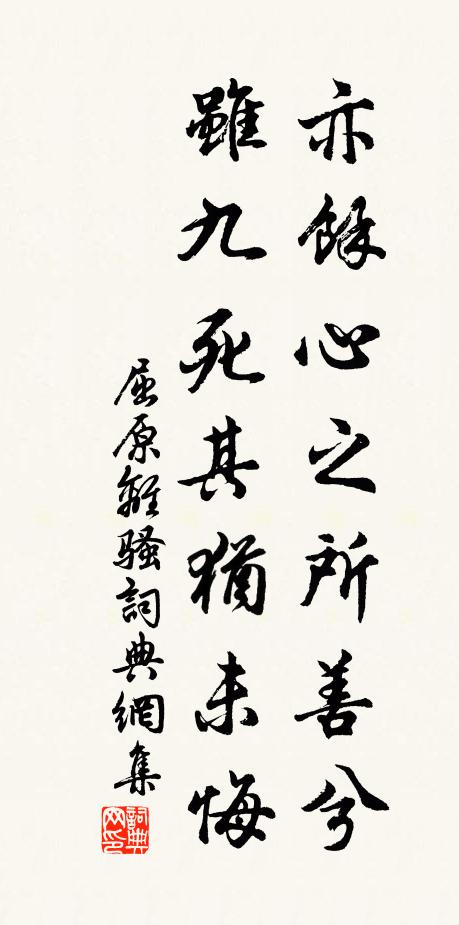 亦餘心之所善兮
雖九死其猶未悔
屈原離騷詞典網集
詞典网印